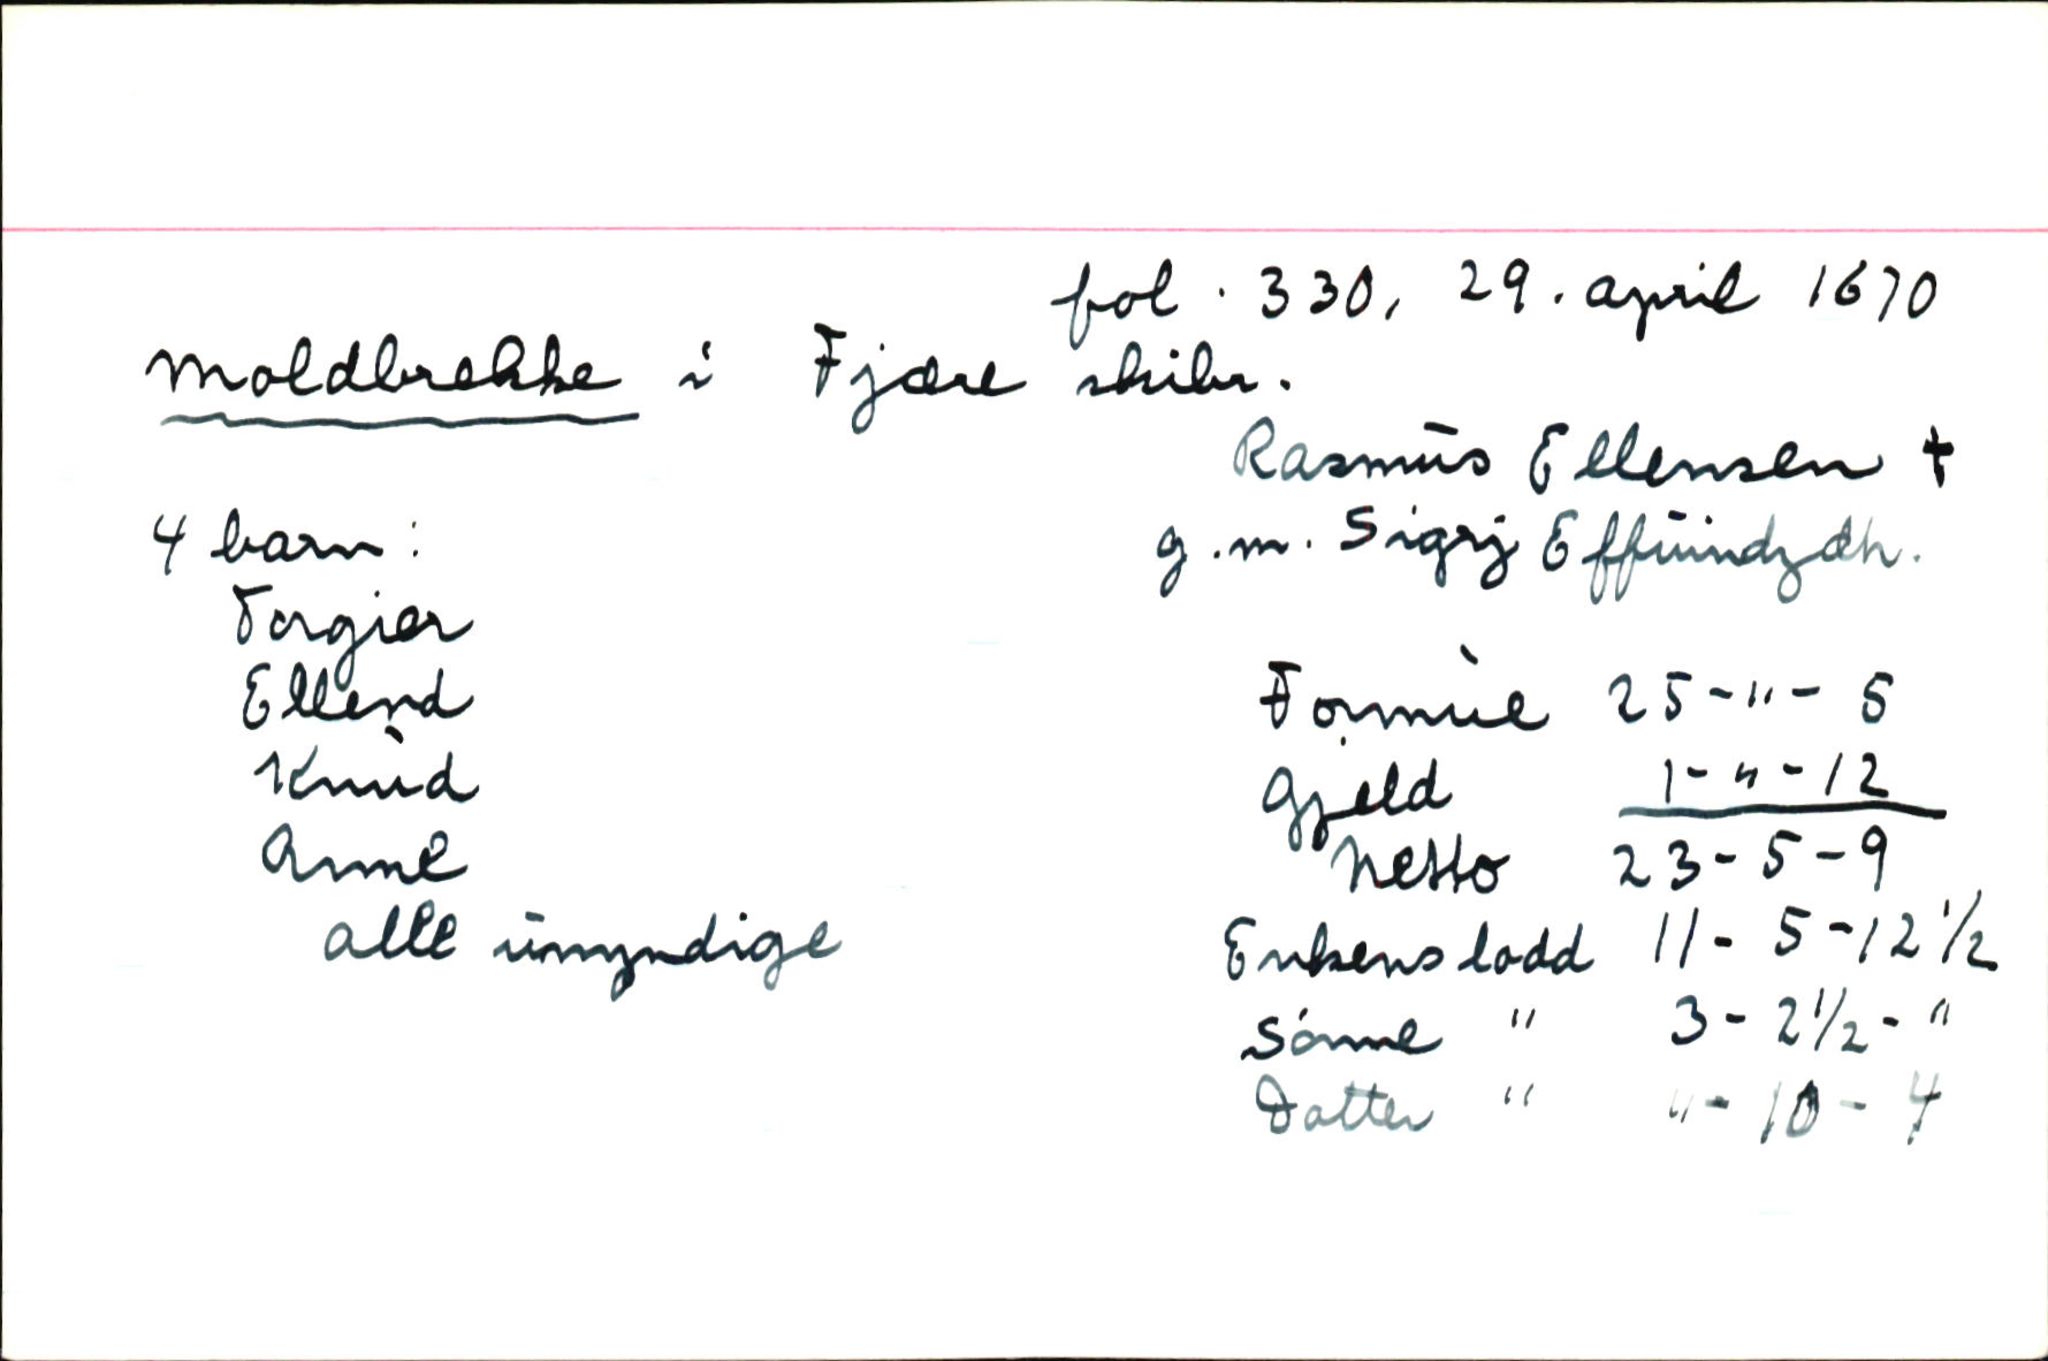 fol. 330, 29. april 1670
Moldbrekke i Fjære skibr.
Rasmus Ellensen †
g.m. Sigrj Effuindzdh.
4 barn:
Torgier
Ellend
Knud
Anne
alle umyndige
Formue 25-"- 5
Gjeld 1-"-12
Netto 23-5-9
Enkens lodd 11- 5-12 1/2
Sønne " 3- 2 1/2-"
Datter " "-10-4